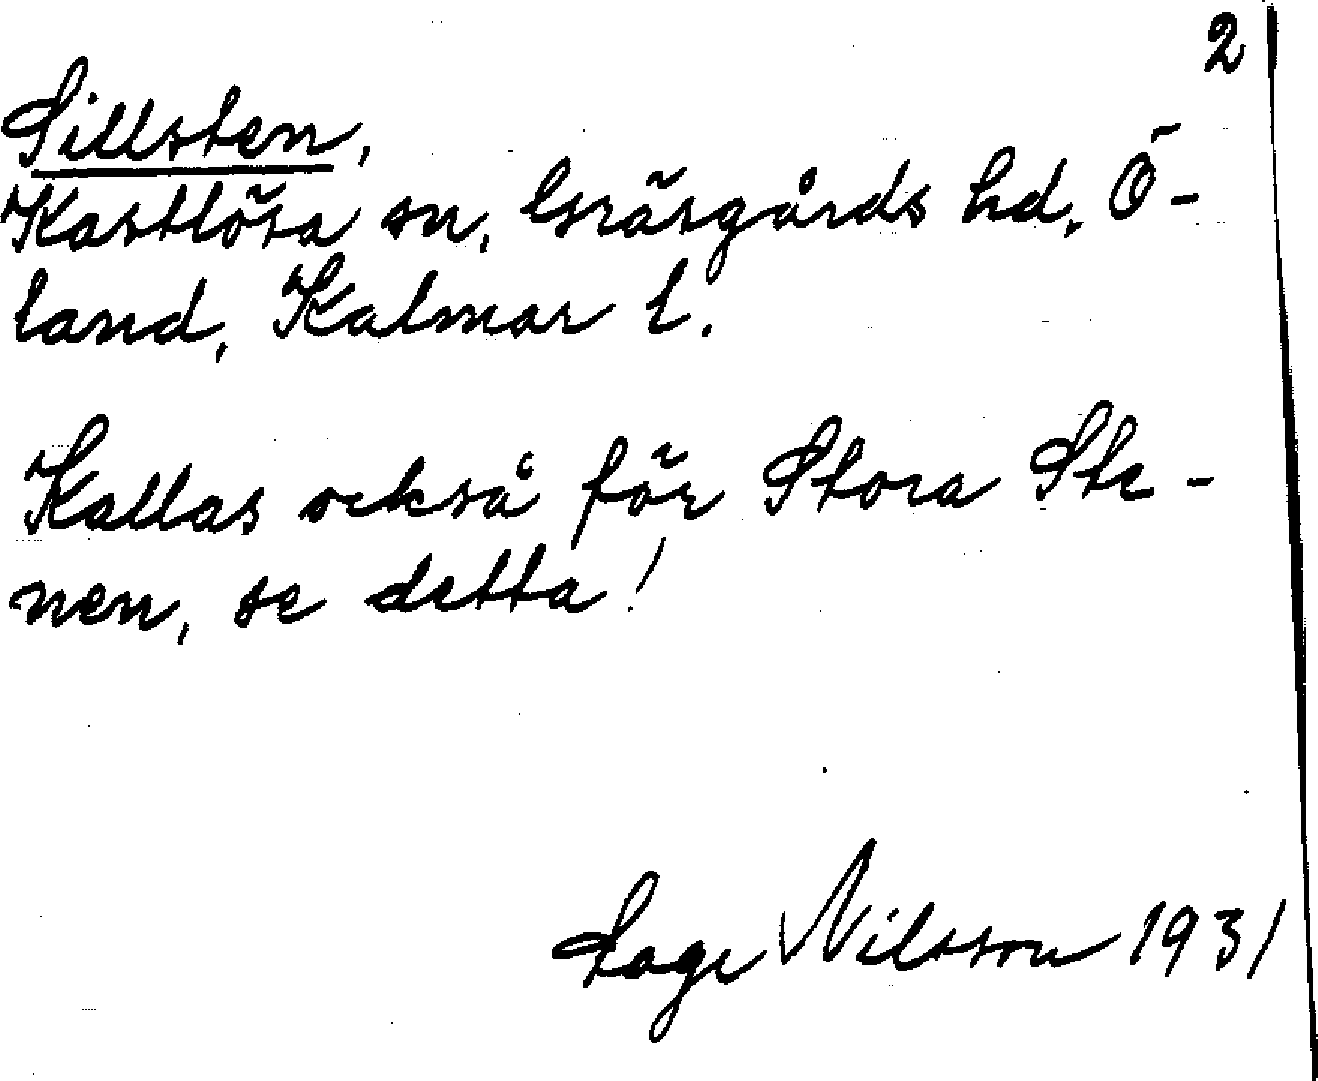 2
Sillsten,
Kastlösa sn, Gräsgårds hd, Ö-
land, Kalmar l.
Kallas också för Stora Ste-
nen, se detta!
Sage Nilsson 1931